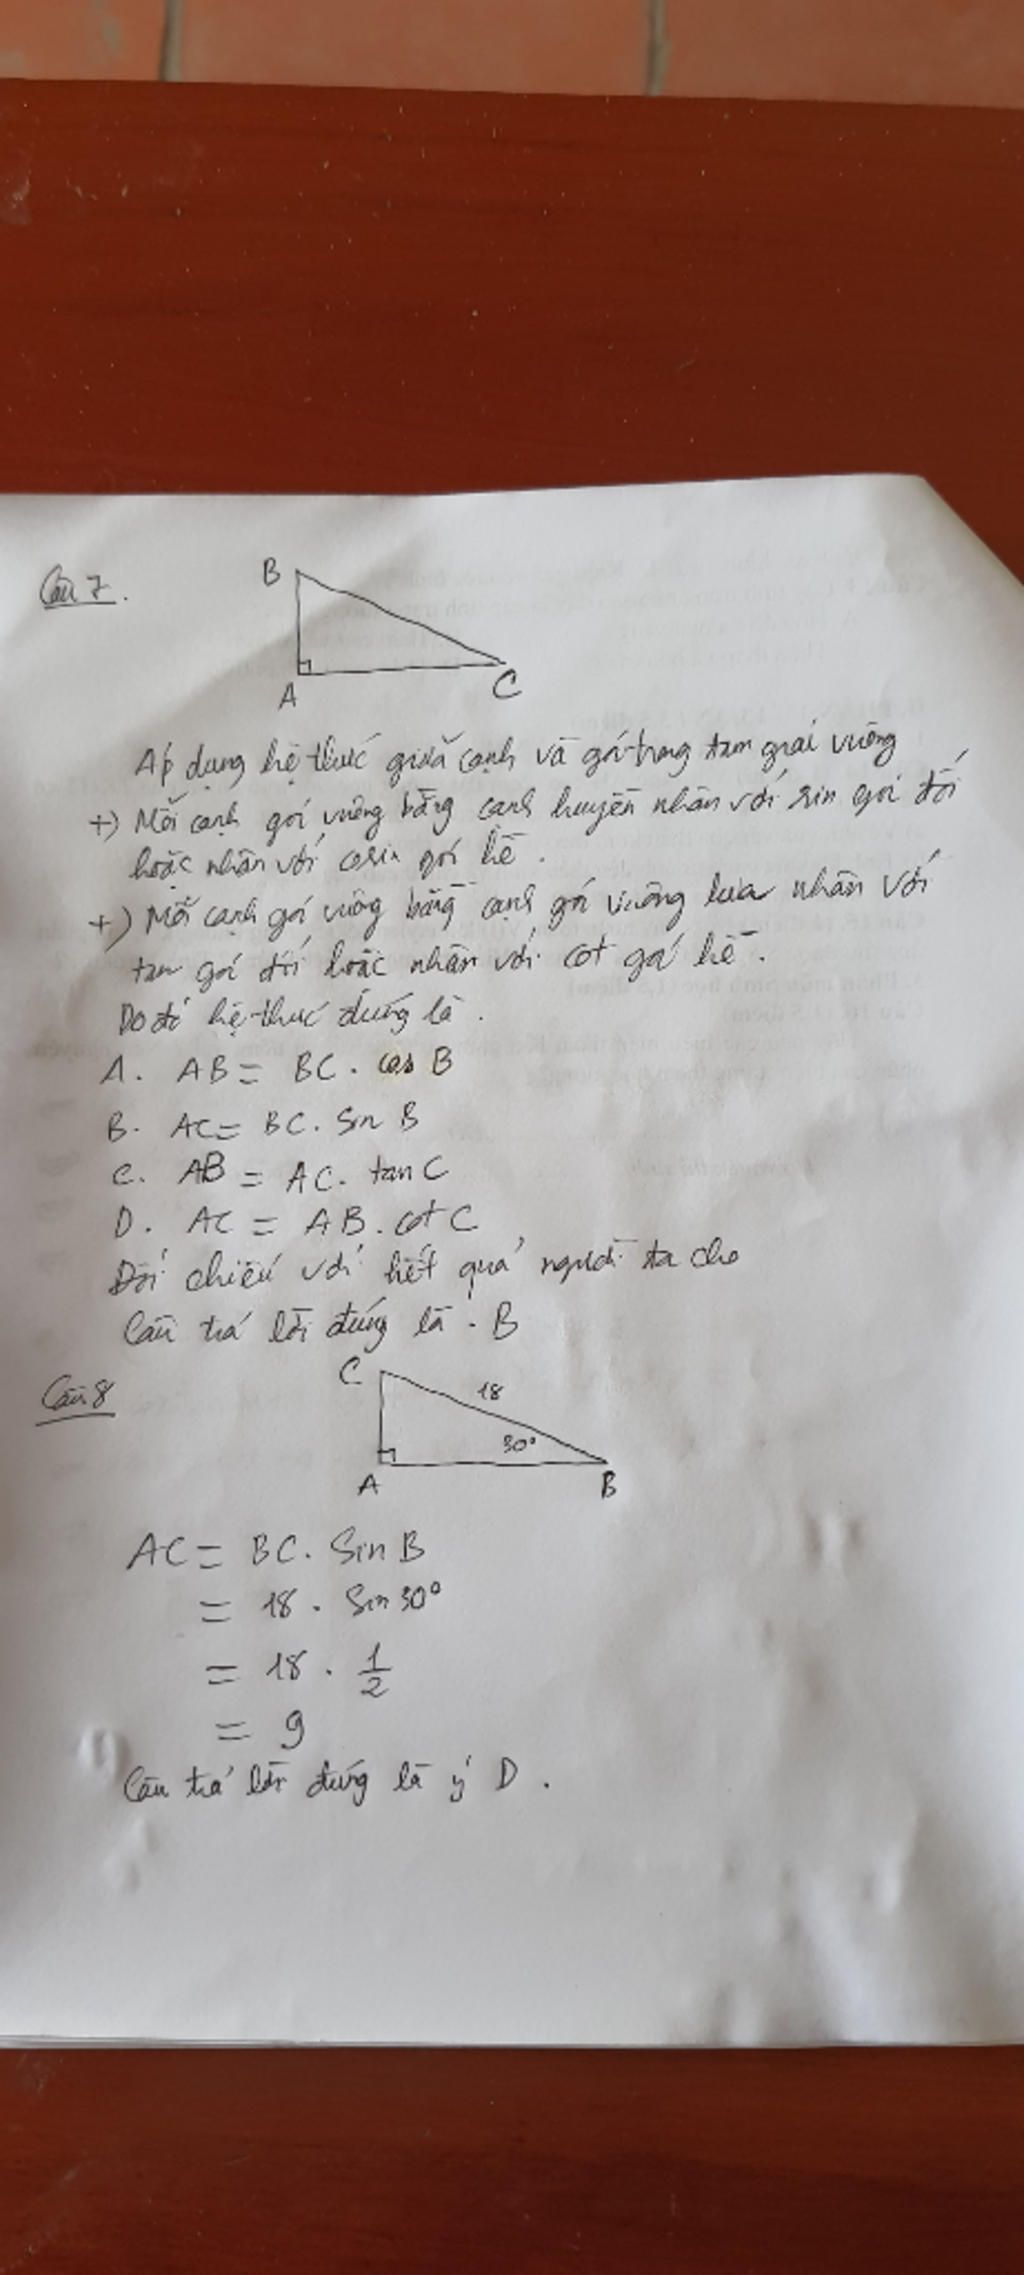 Câu 7.
B
A
C
Áp dụng hệ thức giữa cạnh và góc trong tam giác vuông
+) Mỗi cạnh góc vuông bằng cạnh huyền nhân với sin góc đối
hoặc nhân với cosin góc kề.
+) Mỗi cạnh góc vuông bằng cạnh góc vuông kia nhân với
tan góc đối hoặc nhân với cot góc kề.
Do đó hệ thức đúng là.
A. AB = BC. cos B
B. AC = BC. Sin B
C. AB = AC. tan C
D. AC = AB. cot C
Đối chiếu với kết quả người ta cho
Câu trả lời đúng là. B
Câu 8
C
18
30°
A
B
AC = BC. Sin B
= 18. Sin 30°
= 18. 1/2
= 9
Câu trả lời đúng là ý D.